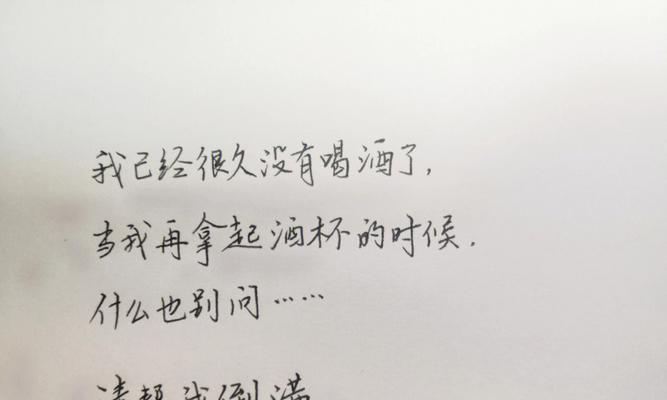 我已经很久没有喝酒了，
当我再拿起酒杯的时候．
什么也别问……
请帮我倒满